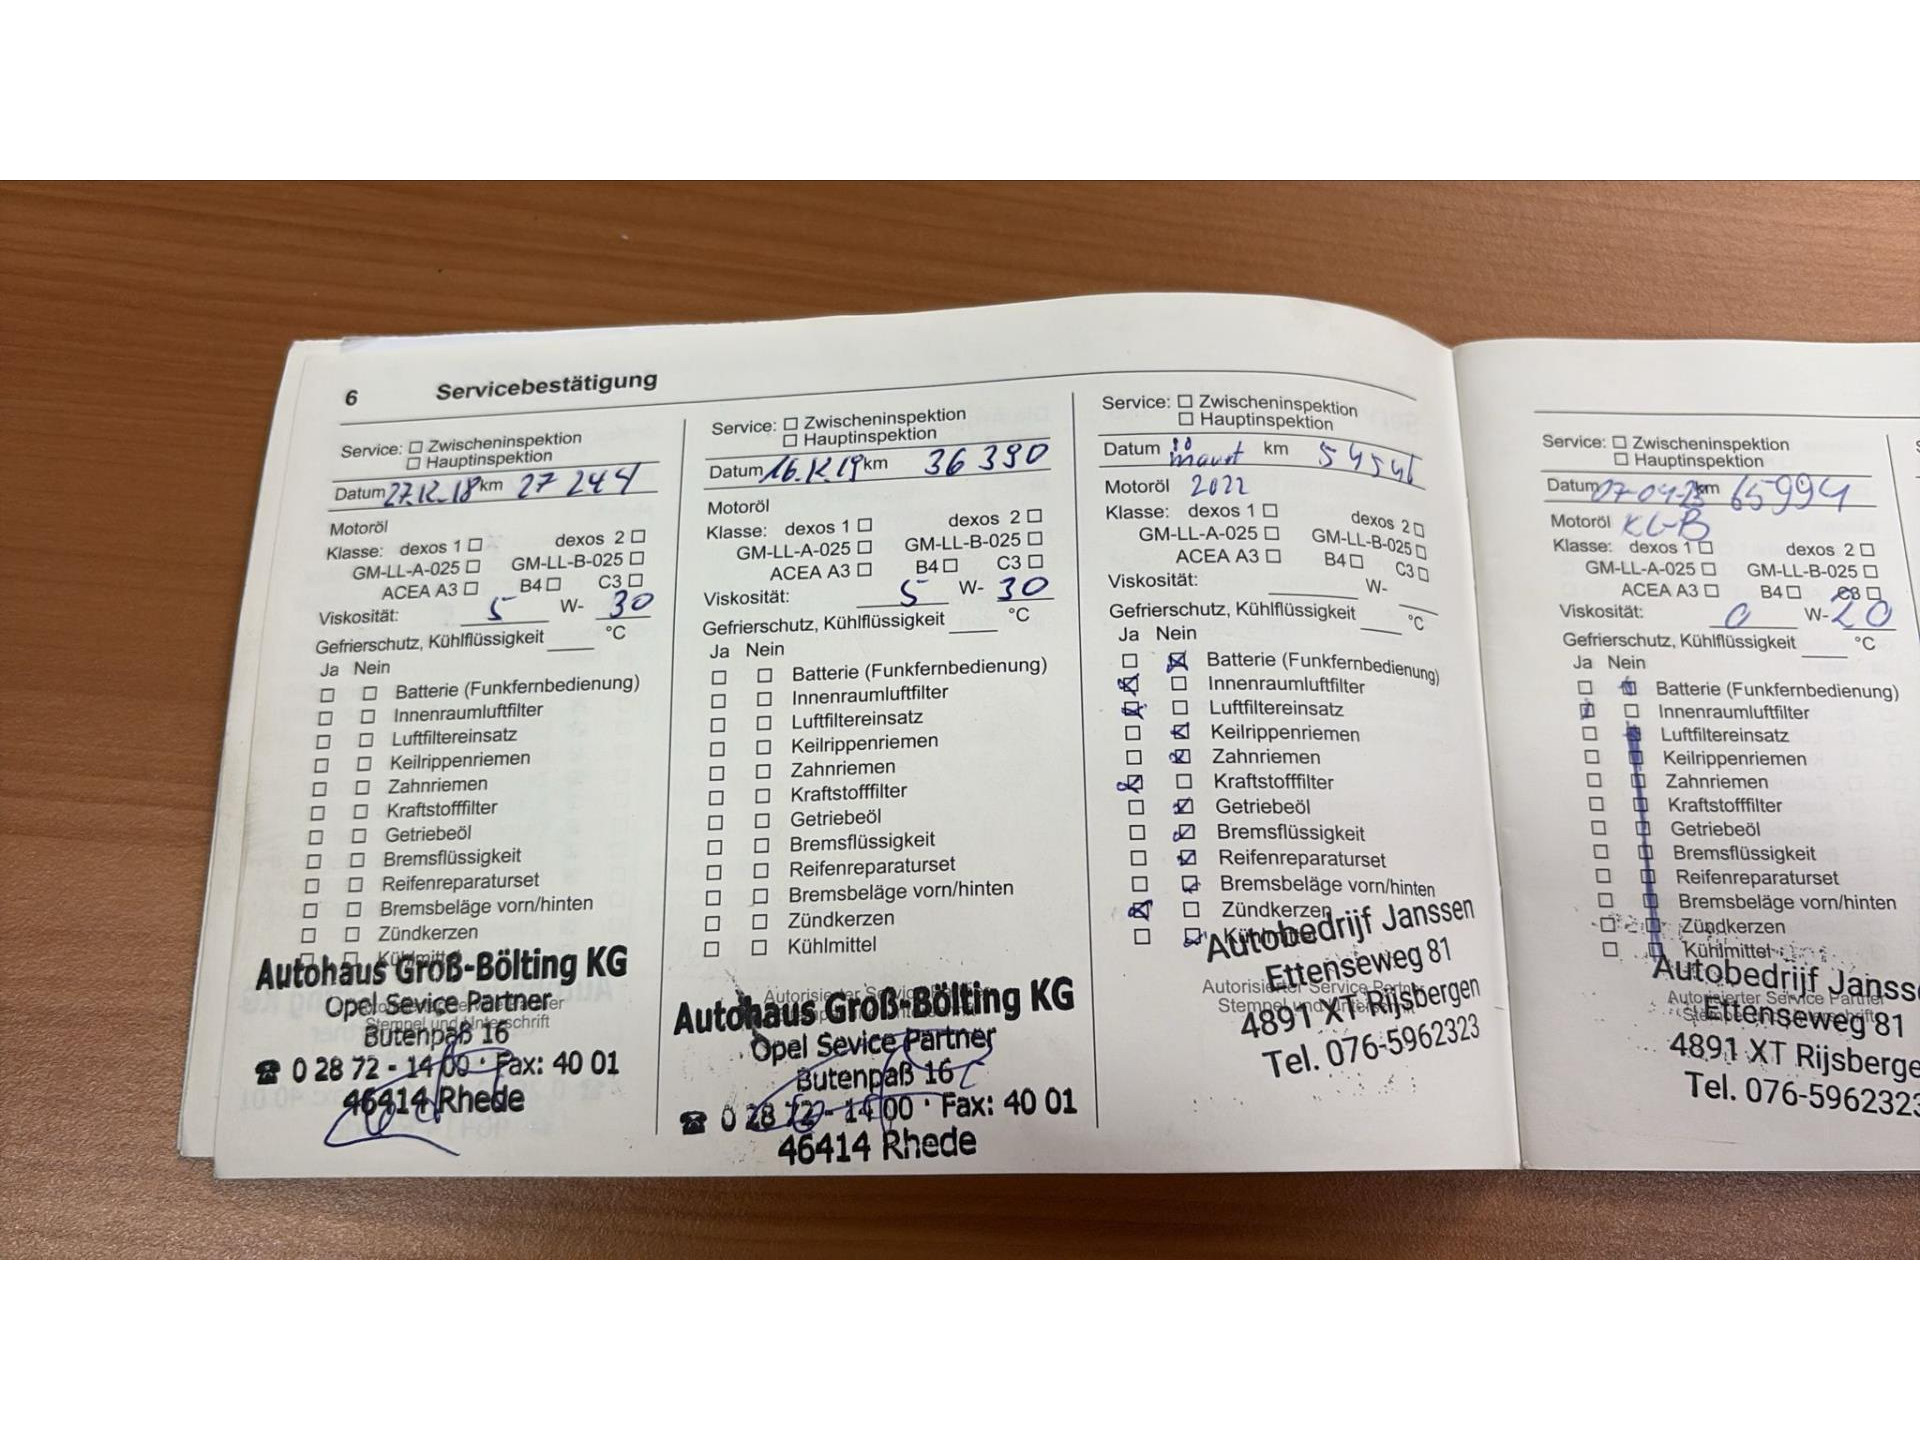 6 Servicebestätigung
Service: Zwischeninspektion
Hauptinspektion
Datum 27.12.18 km 27 244
Motoröl
Klasse: dexos 1 dexos 2
GM-LL-A-025 GM-LL-B-025
ACEA A3 B4 C3
Viskosität: 5 W- 30
Gefrierschutz, Kühlflüssigkeit °C
Ja Nein
Batterie (Funkfernbedienung)
Innenraumluftfilter
Luftfiltereinsatz
Keilrippenriemen
Zahnriemen
Kraftstofffilter
Getriebeöl
Bremsflüssigkeit
Reifenreparaturset
Bremsbeläge vorn/hinten
Zündkerzen
Kühlmittel
Autohaus Groß-Bölting KG
Opel Sevice Partner
Stempel und Unterschrift
Butenpaß 16
☎ 0 28 72 - 14 00 · Fax: 40 01
46414 Rhede
Service: Zwischeninspektion
Hauptinspektion
Datum 16.12.19 km 36 390
Motoröl
Klasse: dexos 1 dexos 2
GM-LL-A-025 GM-LL-B-025
ACEA A3 B4 C3
Viskosität: 5 W- 30
Gefrierschutz, Kühlflüssigkeit °C
Ja Nein
Batterie (Funkfernbedienung)
Innenraumluftfilter
Luftfiltereinsatz
Keilrippenriemen
Zahnriemen
Kraftstofffilter
Getriebeöl
Bremsflüssigkeit
Reifenreparaturset
Bremsbeläge vorn/hinten
Zündkerzen
Kühlmittel
Autorisierter Service Partner
Autohaus Groß-Bölting KG
Opel Sevice Partner
Butenpaß 16
☎ 0 28 72 - 14 00 · Fax: 40 01
46414 Rhede
Service: Zwischeninspektion
Hauptinspektion
Datum maart km
Motoröl 2022
Klasse: dexos 1 dexos 2
GM-LL-A-025 GM-LL-B-025
ACEA A3 B4 C3
Viskosität: W-
Gefrierschutz, Kühlflüssigkeit °C
Ja Nein
Batterie (Funkfernbedienung)
Innenraumluftfilter
Luftfiltereinsatz
Keilrippenriemen
Zahnriemen
Kraftstofffilter
Getriebeöl
Bremsflüssigkeit
Reifenreparaturset
Bremsbeläge vorn/hinten
Zündkerzen
Kühlmittel
Autobedrijf Janssen
Ettenseweg 81
Autorisierter Service Partner
Stempel und Unterschrift
4891 XT Rijsbergen
Tel. 076-5962323
Service: Zwischeninspektion
Hauptinspektion
Datum 07-04-23 km 65994
Motoröl
Klasse: dexos 1 dexos 2
GM-LL-A-025 GM-LL-B-025
ACEA A3 B4 C3
Viskosität: 0 W- 20
Gefrierschutz, Kühlflüssigkeit °C
Ja Nein
Batterie (Funkfernbedienung)
Innenraumluftfilter
Luftfiltereinsatz
Keilrippenriemen
Zahnriemen
Kraftstofffilter
Getriebeöl
Bremsflüssigkeit
Reifenreparaturset
Bremsbeläge vorn/hinten
Zündkerzen
Kühlmittel
Autobedrijf Jansse
Autorisierter Service Partner
Ettenseweg 81
4891 XT Rijsberge
Tel. 076-5962323